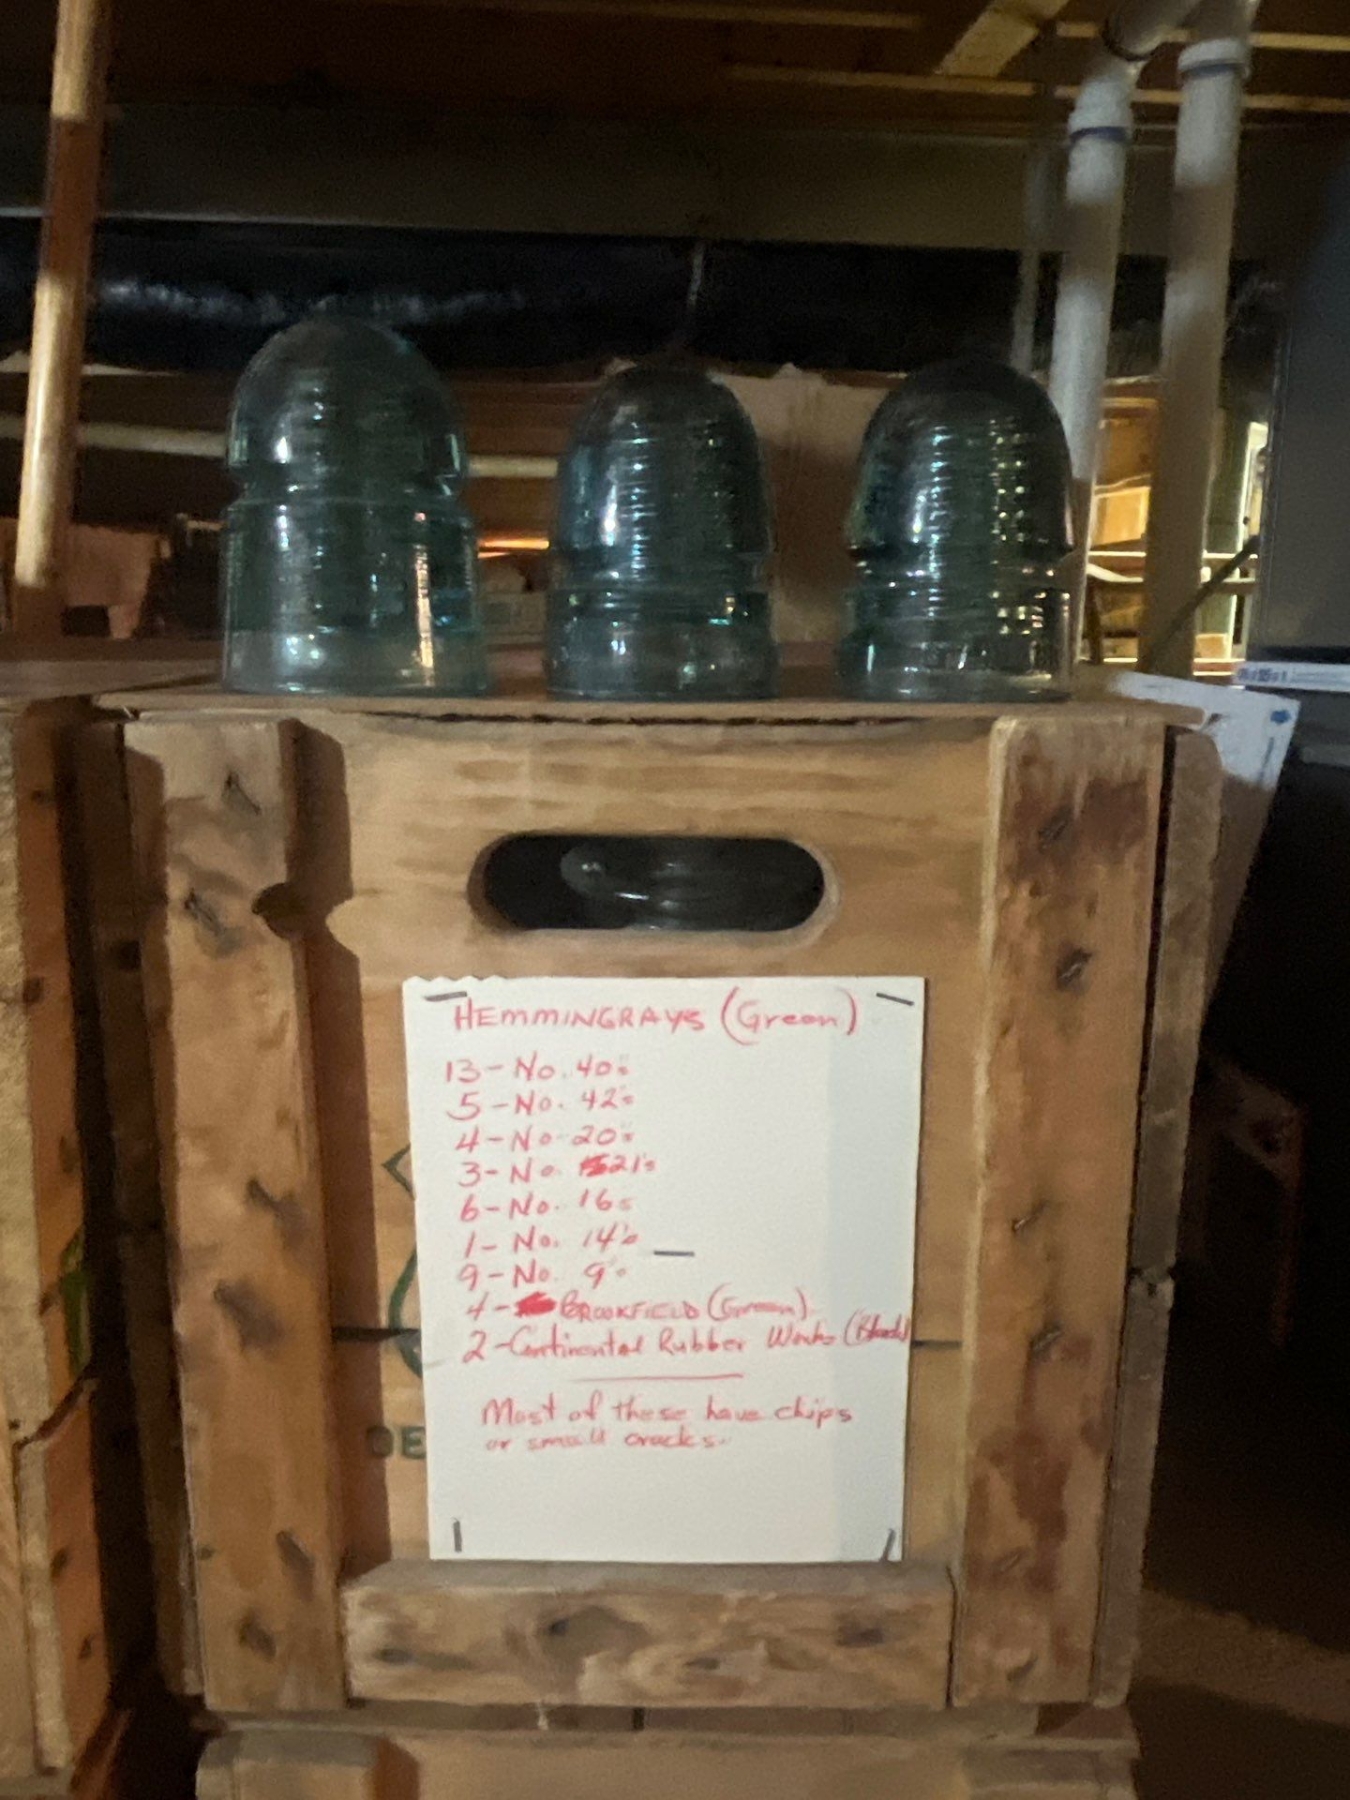 HEMMINGRAYS (Green)
13 - No. 40's
5 - No. 42's
4 - No. 20's
3 - No. 21's
6 - No. 16s
1 - No. 14's
9 - No. 9's
4 - BROOKFIELD (Green)
2 - Continental Rubber Works (Black)
Most of these have chips
or small cracks.
DE